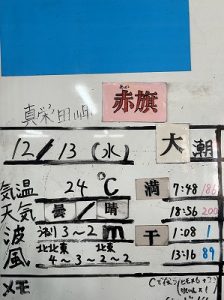 真栄田岬
あかばた
赤旗
12/13(水) 大潮
気温 24℃ 満 7:48 186
天気 曇/晴 18:56 200
波 うねり 3~2m 干 1:08 1
風 北北東 北東 13:16 89
4~3~2~2
メモ